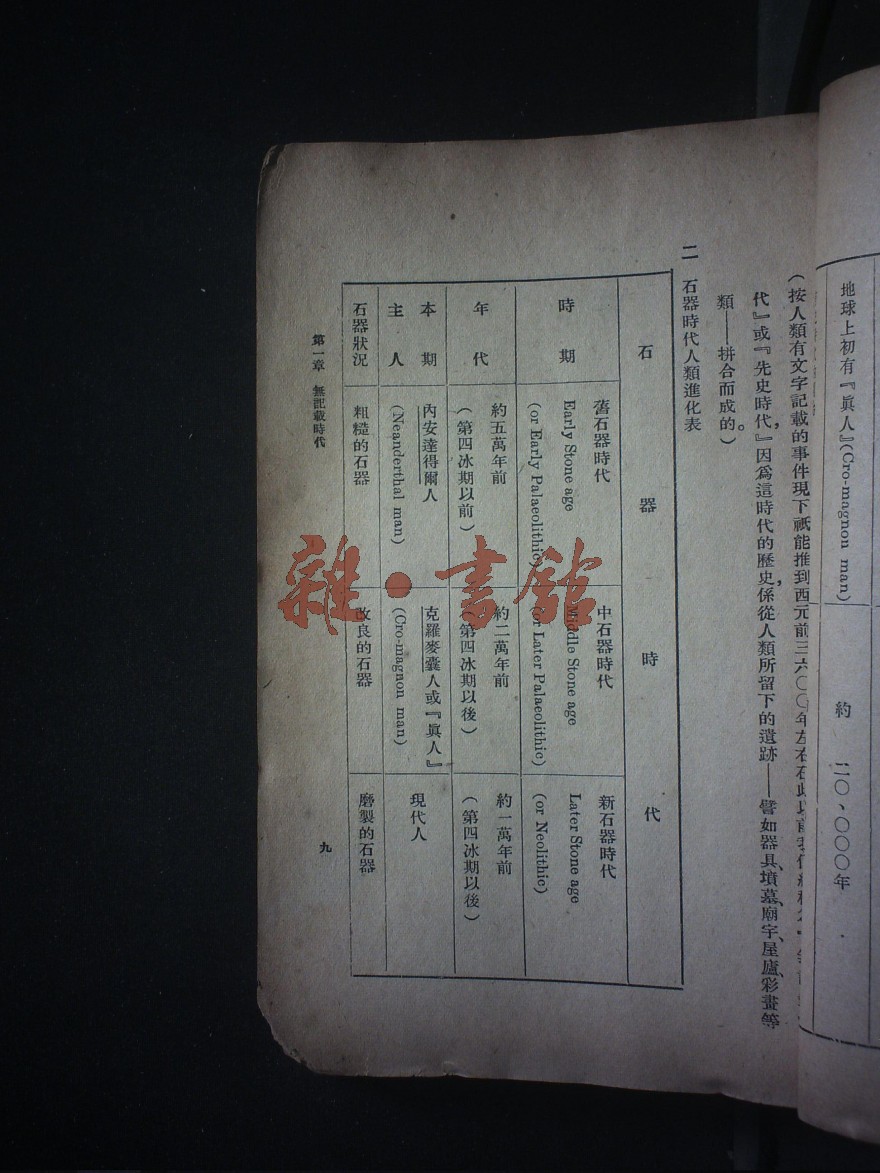 地球上初有『眞人』(Cro-magnon man) 約 二〇、〇〇〇年
(按人類有文字記載的事件現下祇能推到西元前三六〇〇年左右在此以前
代』或『先史時代』因爲這時代的歷史,係從人類所留下的遺跡——譬如器具、墳墓、廟宇、屋廬、彩畫等
類——拼合而成的。)
二 石器時代人類進化表
石器時代
時期 舊石器時代 Early Stone age (or Early Palaeolithic) 中石器時代 Middle Stone age (or Later Palaeolithic) 新石器時代 Later Stone age (or Neolithic)
年代 約五萬年前 (第四冰期以前) 約二萬年前 (第四冰期以後) 約一萬年前 (第四冰期以後)
本期主人 內安達得爾人 (Neanderthal man) 克羅麥囊人或『眞人』 (Cro-magnon man) 現代人
石器狀況 粗糙的石器 改良的石器 磨製的石器
第一章 無記載時代 九
雜·書館